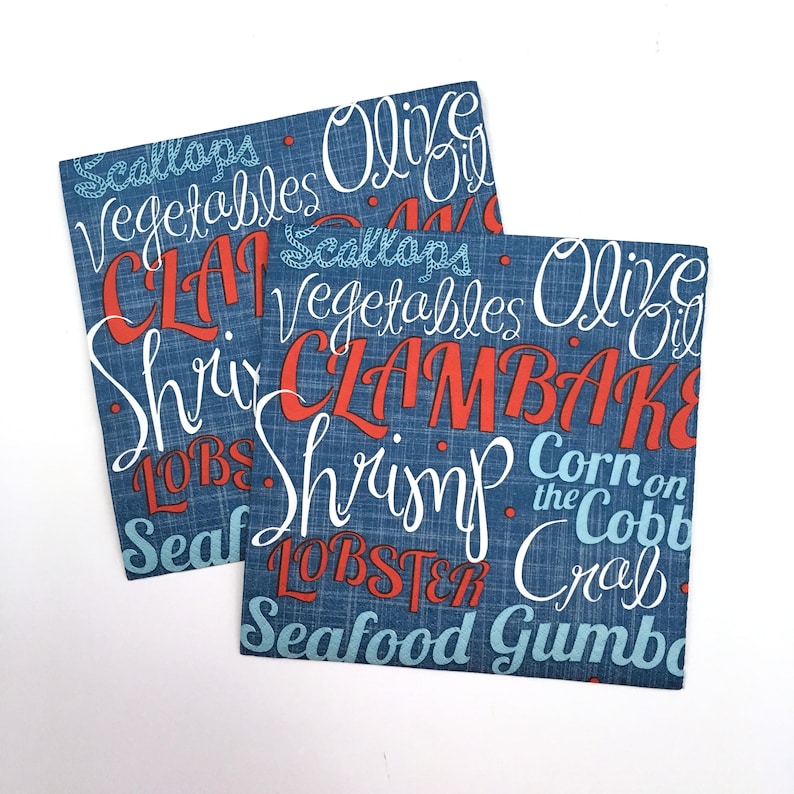 Scallops
Olive
Oil
Vegetables
CLAMBAKE
Shrim
LOBS
Seaf
Scallops
Olive
Oil
Vegetables
CLAMBAKE
Shrimp
Corn on
the Cobb
LOBSTER
Crab
Seafood Gumbo